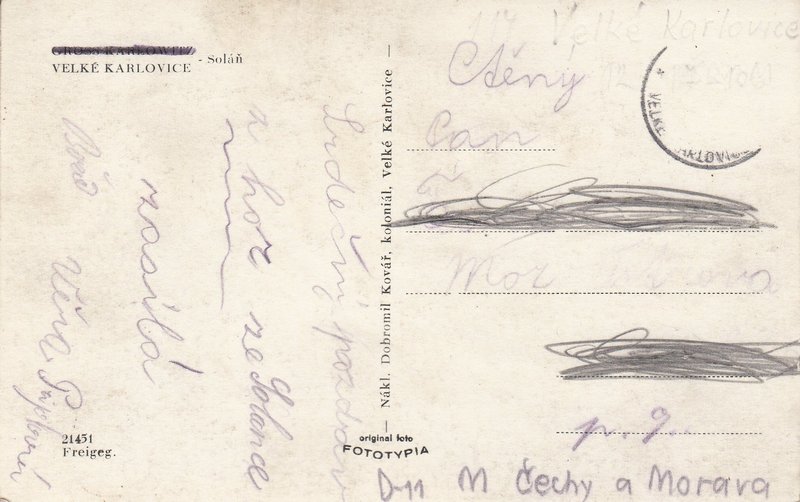 GROSS KARLOWITZ
VELKÉ KARLOVICE - Soláň
Srdečný pozdrav
z hor ze Solance
zasílá
Věra
21451
Freigeg.
Nákl. Dobromil Kovář, koloniál, Velké Karlovice
original foto
FOTOTYPIA
117 Velké Karlovice
12
Ctěný
Pan
Mor
p. 9.
D-11 M Čechy a Morava
VELKÉ KARLOVICE